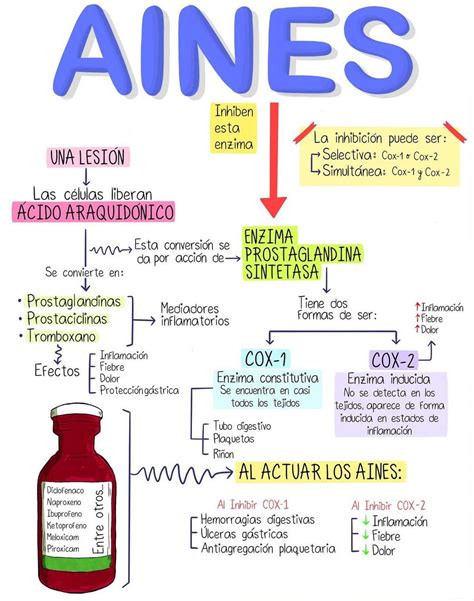 AINES
Inhiben
esta
enzima
La inhibición puede ser:
Selectiva: Cox-1 o Cox-2
Simultánea: Cox-1 y Cox-2
UNA LESIÓN
Las células liberan
ÁCIDO ARAQUIDÓNICO
Esta conversión se
da por acción de
ENZIMA
PROSTAGLANDINA
SINTETASA
Se convierte en:
• Prostaglandinas
• Prostaciclinas
• Tromboxano
Mediadores
inflamatorios
Efectos
Inflamación
Fiebre
Dolor
Protección gástrica
Tiene dos
formas de ser:
↑Inflamación
↑Fiebre
↑Dolor
COX-1
Enzima constitutiva
Se encuentra en casi
todos los tejidos
Tubo digestivo
Plaquetas
Riñon
COX-2
Enzima inducida
No se detecta en los
tejidos, aparece de forma
inducida en estados de
inflamación
Diclofenaco
Naproxeno
Ibuprofeno
Ketoprofeno
Meloxicam
Piroxicam
Entre otros...
AL ACTUAR LOS AINES:
Al Inhibir COX-1
Hemorragias digestivas
Úlceras gástricas
Antiagregación plaquetaria
Al Inhibir COX-2
↓ Inflamación
↓ Fiebre
↓ Dolor